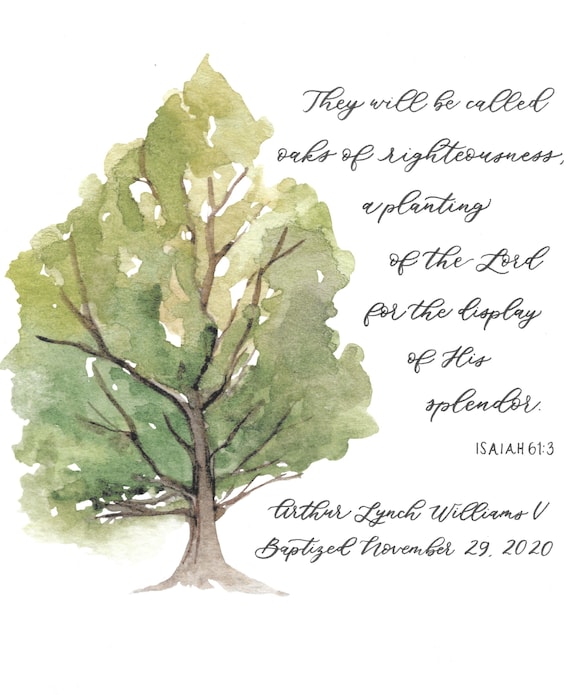 They will be called
oaks of righteousness,
a planting
of the Lord
for the display
of His
splendor.
ISAIAH 61:3
Arthur Lynch Williams V
Baptized November 29, 2020